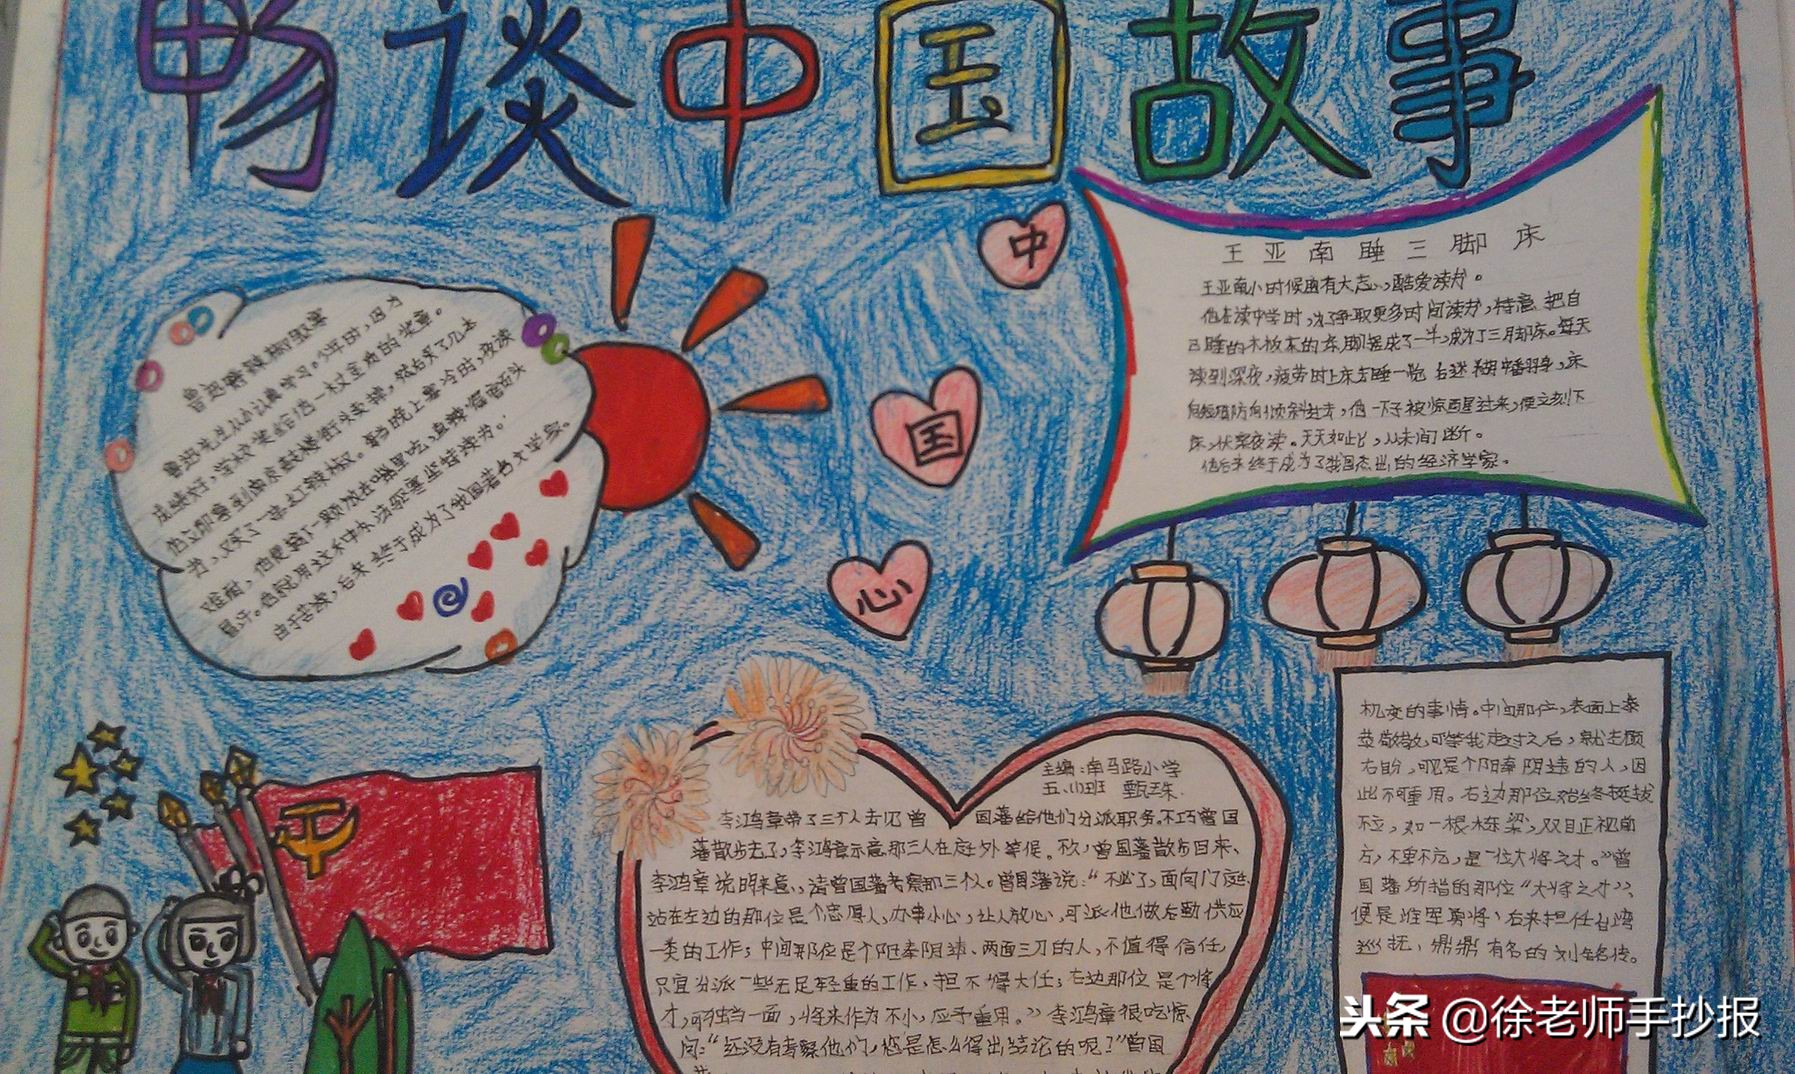 畅谈中国故事
鲁迅嚼辣椒驱寒
鲁迅先生从小认真学习。少年时，因为
成绩优异，学校奖给他一枚金质的奖章。
他立即拿到南京鼓楼街头卖掉，然后买了几本
书，又买了一串红辣椒。每当晚上寒冷时，夜读
难耐，他便摘下一颗放在嘴里吃，直辣得额头
冒汗。他就用这种办法驱寒坚持读书。
由于苦读，后来终于成为了我国著名文学家。
中
国
心
王亚南睡三脚床
王亚南小时候胸有大志，酷爱读书。
他在读中学时，为了争取更多时间读书，特意把自
己睡的木板床的床脚锯成了一半，成为了三脚床。每天
读到深夜，疲劳时上床去睡一觉后迷糊中翻身，床
向短脚方向倾斜过去，他一下子被惊醒过来，便立刻下
床，伏案夜读。天天如此，从未间断。
他后来终于成为了我国杰出的经济学家。
主编：南马路小学
五（1）班 甄珠
李鸿章带了三个人去见曾国藩给他们分派职务。不巧曾国
藩散步去了，李鸿章示意那三人在庭外等候。不久，曾国藩散步回来、
李鸿章说明来意，请曾国藩考察那三个人。曾国藩说：“不必了，面向门庭
站在左边的那位是个忠厚人，办事小心，让人放心，可派他做后勤供应
一类的工作；中间那位是个阳奉阴违、两面三刀的人，不值得信任，
只宜分派一些无足轻重的工作，担不得大任；右边那位是个将
才，可独当一面，将来作为不小，应予重用。”李鸿章很吃惊
问：“还没有考察他们，您是怎么得出结论的呢？”曾国
机变的事情。中间那位，表面上恭
恭敬敬，可等我走过之后，就左顾
右盼，可见是个阳奉阴违的人，因
此不可重用。右边那位始终挺拔
不立，如一根栋梁，双目正视前
方，不卑不亢，是一位大将之才。”曾
国藩所指的那位“大将之才”，
便是淮军勇将、后来担任台湾
巡抚、鼎鼎有名的刘铭传。
头条 @徐老师手抄报